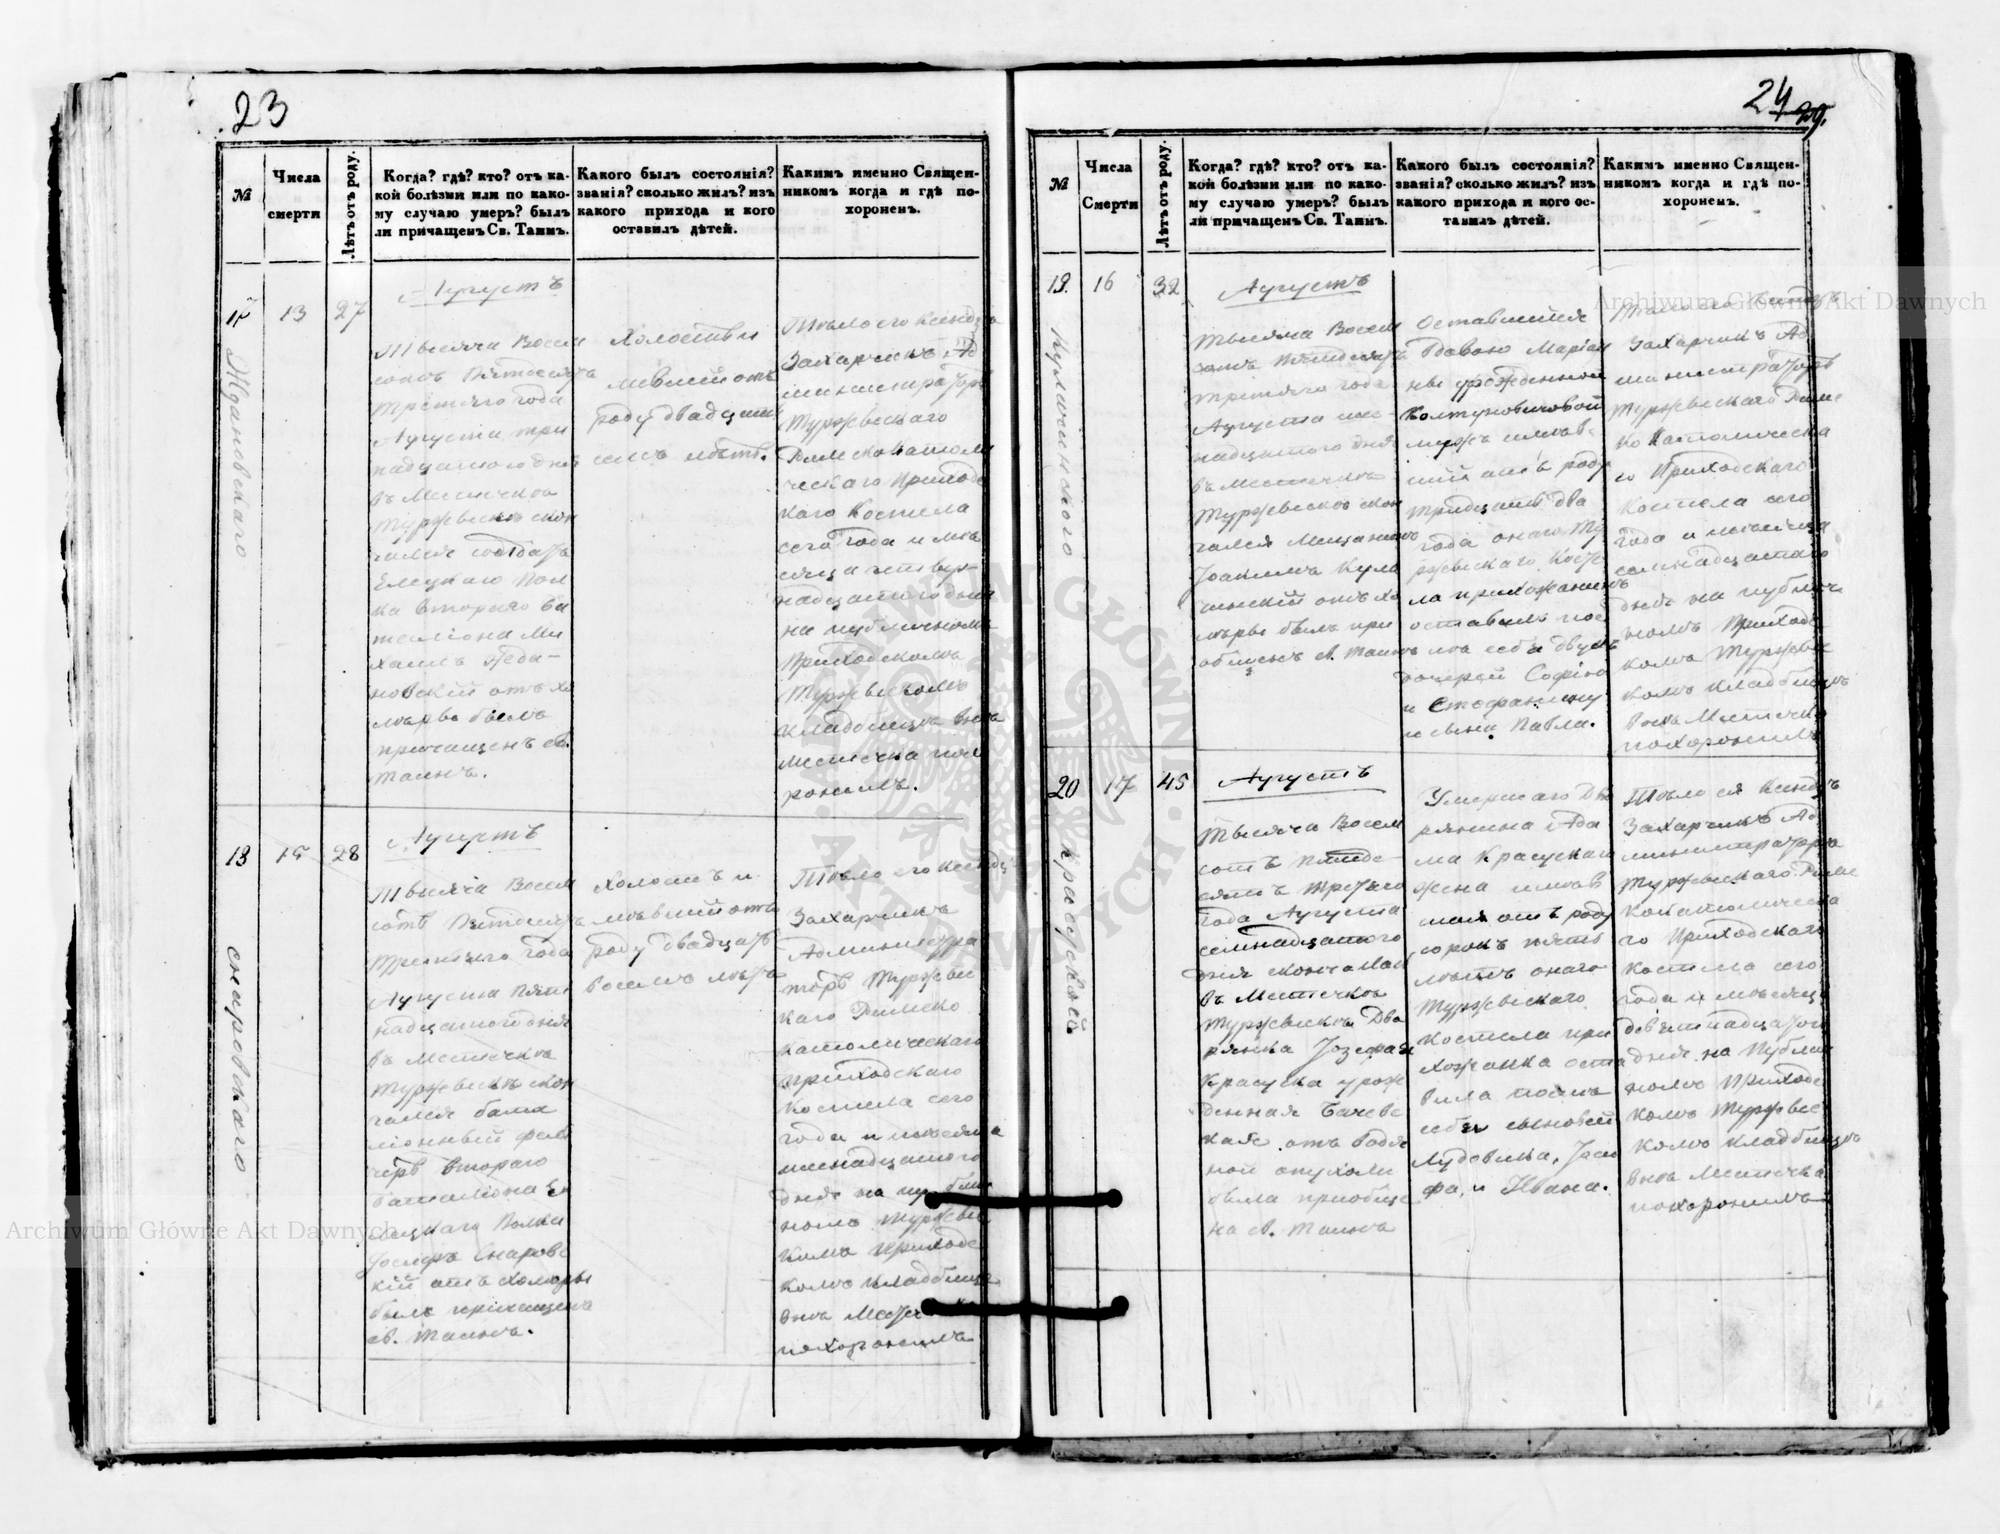 23
№
Числа
смерти
Лѣтъ отъ роду.
Когда? гдѣ? кто? отъ ка-
кой болѣзни или по како-
му случаю умеръ? былъ
ли причащенъ Св. Таинъ.
Какого былъ состоянія?
званія? сколько жилъ? изъ
какого прихода и кого
оставилъ дѣтей.
Какимъ именно Священ-
никомъ когда и гдѣ по-
хороненъ.
17
13
27
Ждановскаго
Августъ
Тысяча Восем
сотъ Пятдесятъ
третяго года
Августа три
надцатого дня
въ Местечкѣ
Туржыскѣ скон
чался солдатъ
Елецкаго Пол
ка втораго Ба
талiона Ми
хаилъ Жда-
новскій отъ хо
леры былъ
причащенъ св.
таинъ.
Холостъ и
мѣвшій отъ
роду двадцать
семь лѣтъ.
Тѣло его Ксендзъ
Захарчикъ Ад
министраторъ
Туржыскаго
Римскокатоли
ческаго Приходс
каго Костела
сего года и мѣ
сяца четвер-
надцатого дня
на публичномъ
Приходскомъ
Туржыскомъ
кладбищѣ внѣ
местечка похо
ронилъ.
18
15
28
Снаровскаго
Августъ
Тысяча Восем
сотъ Пятдесятъ
третяго года
Августа Пят
надцатого дня
въ Местечкѣ
Туржыскѣ скон
чался бата
ліонный фелд
черъ втораго
баталіона Е
лецкаго Полка
Іосифъ Снаровс
кій отъ холеры
былъ причащенъ
св. Таинъ.
Холостъ и
мѣвшій отъ
роду двадцать
восемь лѣтъ
Тѣло его Ксендзъ
Захарчикъ
Администра
торъ Туржыс
каго Римско
католическаго
приходскаго
Костела сего
года и мѣсяца
шеснадцатого
дня на публич
номъ Туржыс
комъ приходс
комъ кладбищѣ
внѣ Местечка
похоронилъ
24
№
Числа
Смерти
Лѣтъ отъ роду.
Когда? гдѣ? кто? отъ ка-
кой болѣзни или по како-
му случаю умеръ? былъ
ли причащенъ Св. Таинъ.
Какого былъ состоянія?
званія? сколько жилъ? изъ
какого прихода и кого ос-
тавилъ дѣтей.
Какимъ именно Священ-
никомъ когда и гдѣ по-
хороненъ.
19.
16
32
Кулчинского
Августъ
Тысяча Восем
сотъ Пятдесятъ
третяго года
Августа шес-
надцатого дня
въ местечкѣ
Туржыскѣ скон
чался Мещанинъ
Іоакимъ Кул
чинскій отъ хо
леры былъ при
общенъ св. таинъ
Оставшейся
вдовою Маріан
ны урожденной
Колтуновичовой
мужъ имѣв-
шій отъ роду
тридцать два
года онаго Ту
ржыскаго Косте
ла прихожанинъ
оставилъ пос
лѣ себя двухъ
дочерей Софію
и Стефанину
и сына Павла.
Тѣло его Ксендзъ
Захарчикъ Ад
министраторъ
Туржыскаго Римс
ко Католическа
го Приходскаго
Костела сего
года и мѣсяца
семнадцатого
дня на публич
номъ Приходс
комъ Туржыс
комъ кладбищѣ
внѣ Местечка
похоронилъ
20
17
45
Красуской
Августъ
Тысяча Восем
сотъ Пятде-
сятъ третяго
года Августа
семнадцатого
дня скончалас
въ Местечкѣ
Туржыскѣ Дво
рянка Іозефая
Красуска урож
денная Бачевс
кая отъ водя
ной опухоли
была приобще
на св. таинъ
Умершаго Дво
рянина Ада
ма Красускаго
жена имѣв
шая отъ роду
сорокъ пять
лѣтъ онаго
Туржыскаго
Костела при
хожанка оста
вила послѣ
себя сыновей
Лудовика, Іоси
фа, и Ивана.
Тѣло ея Ксендзъ
Захарчикъ Ад
министраторъ
Туржыскаго Римс
кокатолическа
го Приходскаго
Костела сего
года и мѣсяца
девятнадцатого
дня на Публич
номъ Приходс
комъ Туржыс
комъ кладбищѣ
внѣ Местечка
похоронилъ
Archiwum Główne Akt Dawnych
Archiwum Główne Akt Dawnych
ARCHIWUM GŁÓWNE AKT DAWNYCH